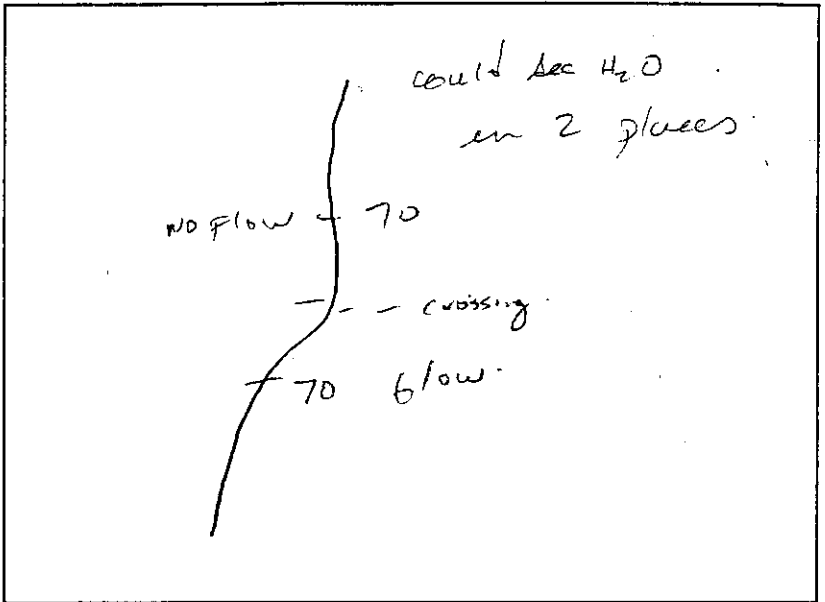 could see H₂O
in 2 places
NO Flow - 70
crossing
70 flow